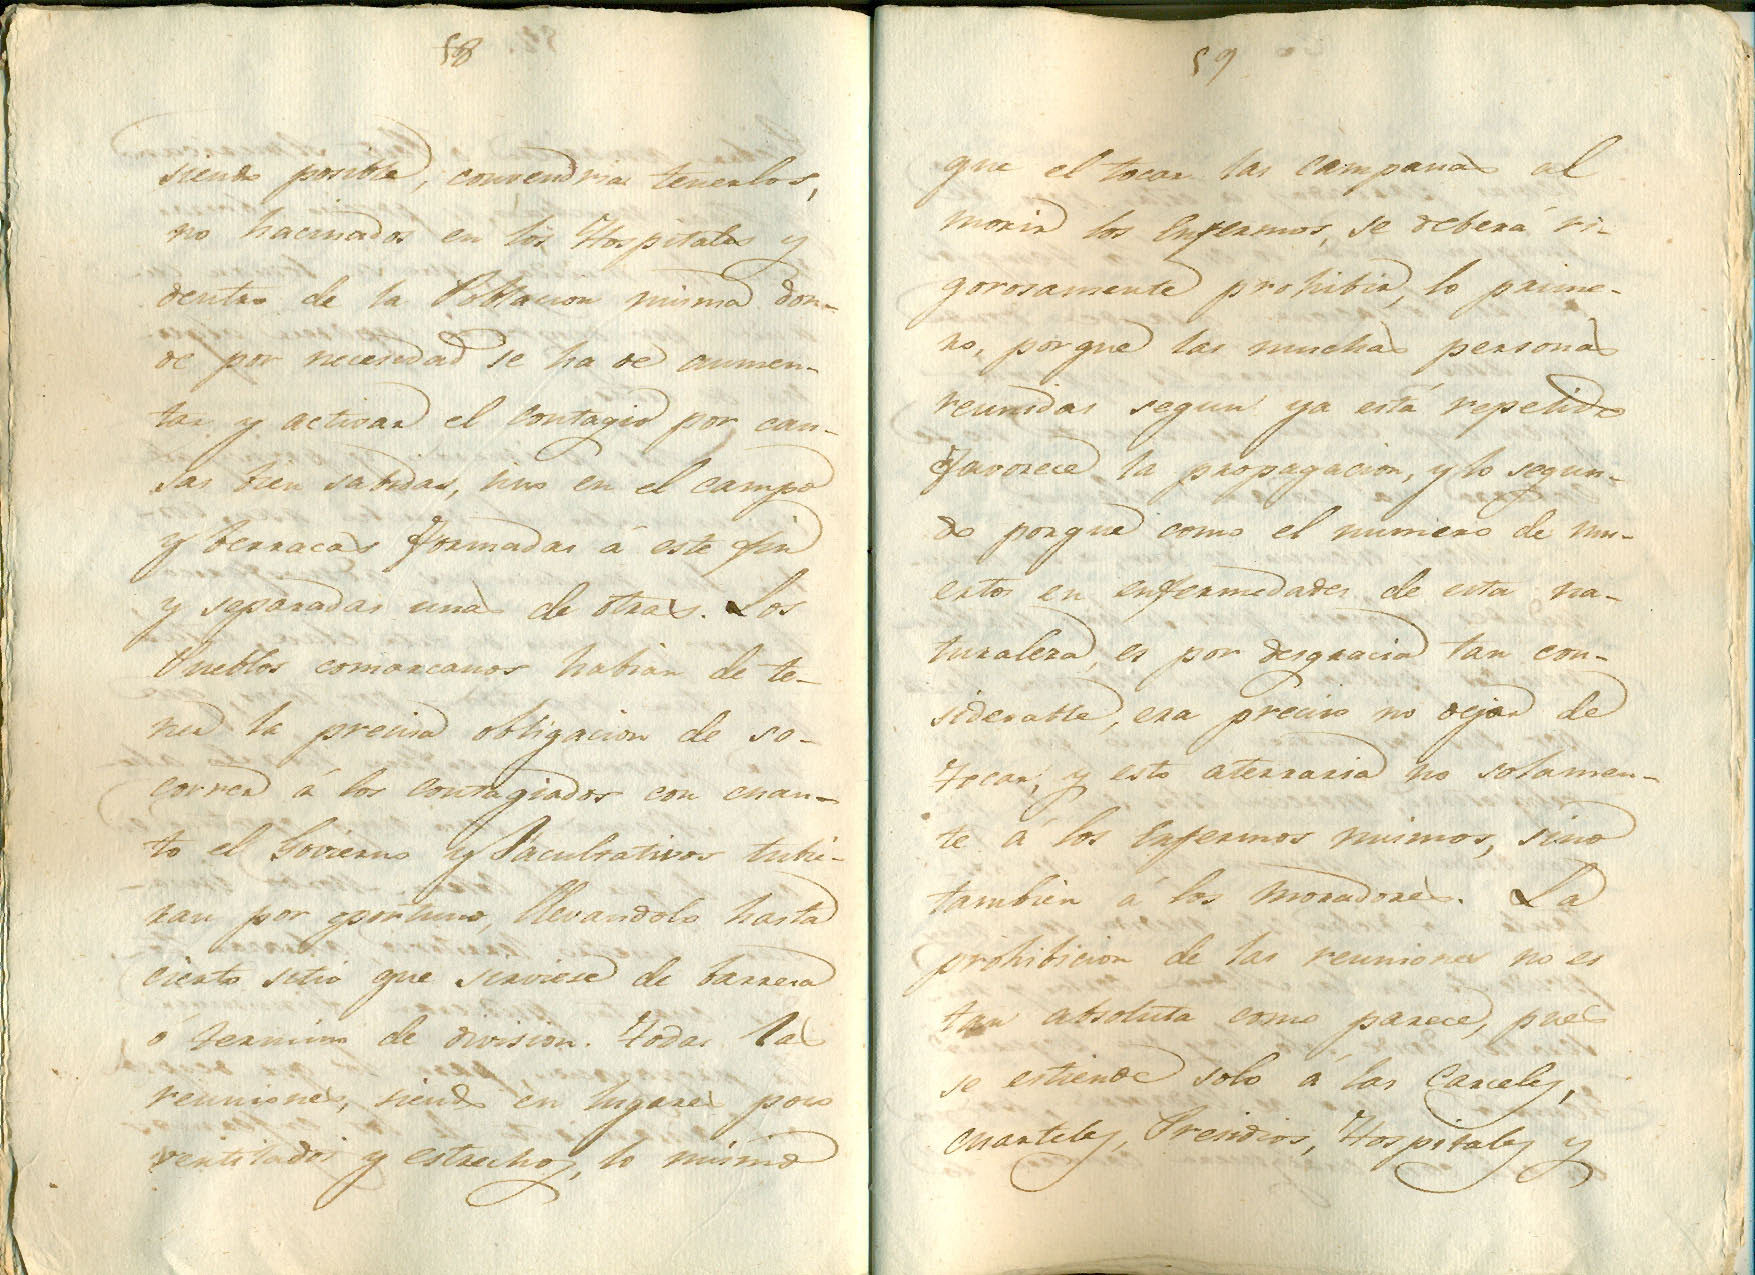 58
siendo posible, convendria tenerlos,
no hacinados en los Hospitales y
dentro de la Poblacion misma don-
de por necesidad se ha de aumen-
tar y activar el contagio por cau-
sas bien sabidas, sino en el campo
y berracas formadas á este fin
y separadas unas de otras. Los
Pueblos comarcanos habian de te-
ner la precisa obligacion de so-
correr á los contagiados con cuan-
to el Govierno y Facultativos tubie-
ran por oportuno, llevandolo hasta
cierto sitio que serviese de barrera
ó termino de division. Todas las
reuniones, siendo en lugares poco
ventilados y estrechos, lo mismo
59
que el tocar las campanas al
morir los Enfermos, se deberá ri-
gorosamente prohibir, lo prime-
ro, porque las muchas personas
reunidas segun ya está repetido
favorece la propagacion, y lo segun-
do porque como el numero de mu-
ertos en enfermedades de esta na-
turaleza, es por desgracia tan con-
siderable, era preciso no dejar de
tocar, y esto aterraria no solamen-
te á los Enfermos mismos, sino
tambien á los moradores. La
prohibicion de las reuniones no es
tan absoluta como parece, pues
se estiende solo á las Carceles,
cuarteles, Presidios, Hospitales y